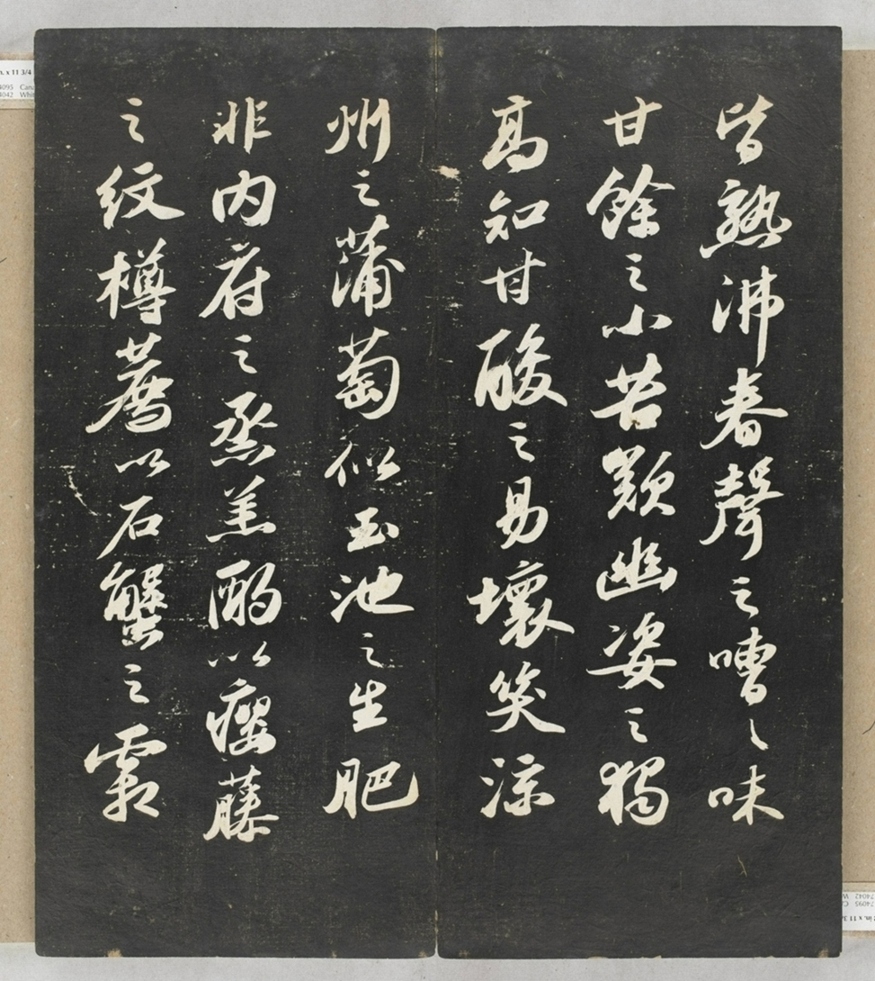 皆熟沸舂聲之嘈〻味
甘餘之小苦歎幽姿之獨
高知甘酸之易壞笑涼
州之蒲萄似玉池之生肥
非內府之烝羔酌以癭藤
之紋樽薦以石蟹之霜
x 11 3/4
4095
4042